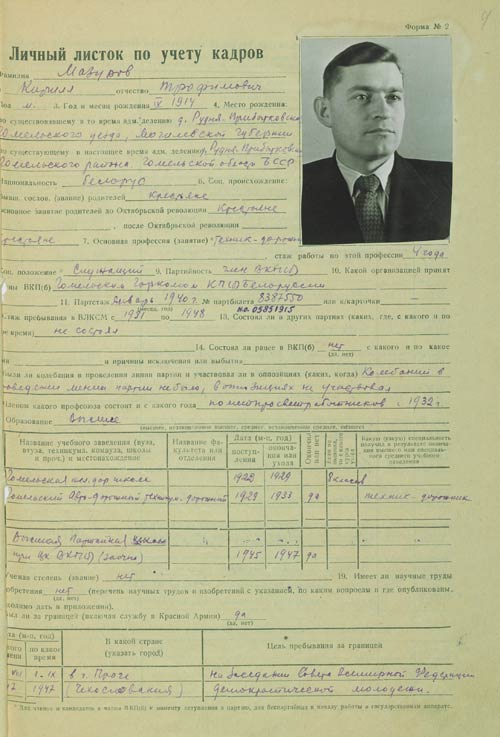 Форма № 2
Личный листок по учету кадров
Фамилия Мазуров
Кирилл отчество Трофимович
Пол м. 3. Год и месяц рождения IV 1914 4. Место рождения:
по существовавшему в то время адм. делению д. Рудня-Прибытковская
Гомельского уезда, Могилевской губернии
по существующему в настоящее время адм. делению д. Рудня-Прибытковская
Гомельского района Гомельской области БССР
Национальность белорус 6. Соц. происхождение:
бывш. сослов. (звание) родителей крестьяне
основное занятие родителей до Октябрьской революции крестьяне
, после Октябрьской революции
крестьяне 7. Основная профессия (занятие) техник-дорожник
стаж работы по этой профессии 4 года
Соц. положение Служащий 9. Партийность член ВКП(б) 10. Какой организацией принят
ны ВКП(б) Гомельским Горкомом КП(б) Белоруссии
11. Партстаж Январь 1940 г. № партбилета 8387550 или к/карточки —
(месяц, год) по. 05851915
Стаж пребывания в ВЛКСМ с 1931 по 1948 13. Состоял ли в других партиях (каких, где, с какого и по
ое время) не состоял
14. Состоял ли ранее в ВКП(б) нет с какого и по какое
(да, нет)
мя и причины исключения или выбытия
Были ли колебания в проведении линии партии и участвовал ли в оппозициях (каких, когда) Колебаний в
проведении линии партии не было, в оппозициях не участвовал
Членом какого профсоюза состоит и с какого года политпросветработников с 1932 г.
Образование высшее
(высшее, незаконченное высшее, среднее, незаконченное среднее, низшее)
Название учебного заведения (вуза, втуза, техникума, комвуза, школы и проч.) и местонахождение Название факультета или отделения Дата (м-ц, год) поступления окончания или ухода Окончил или нет Если не окончил, то с какого курса ушел Какую (какую) специальность получил в результате окончания высшего или специального среднего учебного заведения
Гомельская жел. дор. школа 1922 1929 8 классов
Гомельский Авто-дорожный техникум дорожный 1929 1933 да техник-дорожник
Высшая Партийная Школа
при ЦК ВКП(б) (заочно) 1945 1947 да
Ученая степень (звание) нет 19. Имеет ли научные труды
обретения нет (перечень научных трудов и изобретений с указанием, по каким вопросам и где опубликованы,
ходимо дать в приложении).
Был ли за границей (включая службу в Красной Армии) да
(да, нет)
та (м-ц, год) по какое время В какой стране (указать город) Цель пребывания за границей
VIII 1-IX в г. Праге На заседании Совета всемирной Федерации
47 1947 (Чехословакия) демократической молодежи.